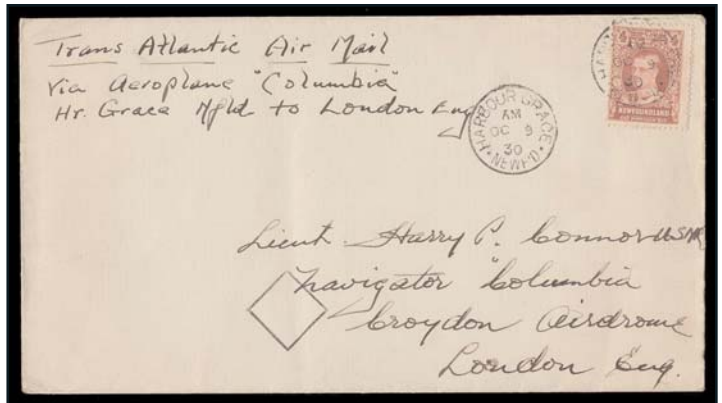 Trans Atlantic Air Mail
Via Aeroplane "Columbia"
Hr. Grace Nfld to London Eng
HARBOUR GRACE
AM
OC 9
30
NEWF'D
NEWFOUNDLAND
Lieut. Harry P. Connor USNR
Navigator "Columbia
Croydon Airdrome
London Eng.